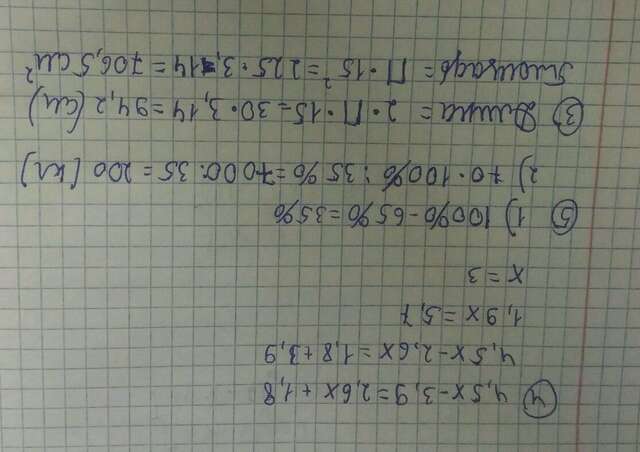 ④ 4,5x-3,9=2,6x+1,8
4,5x-2,6x=1,8+3,9
1,9x=5,7
x=3
⑤ 1) 100%-65%=35%
2) 70·100%:35%=7000:35=200 (кг)
③ Длина=2·П·15=30·3,14=94,2 (см)
Площадь=П·15²=225·3,14=706,5 см²